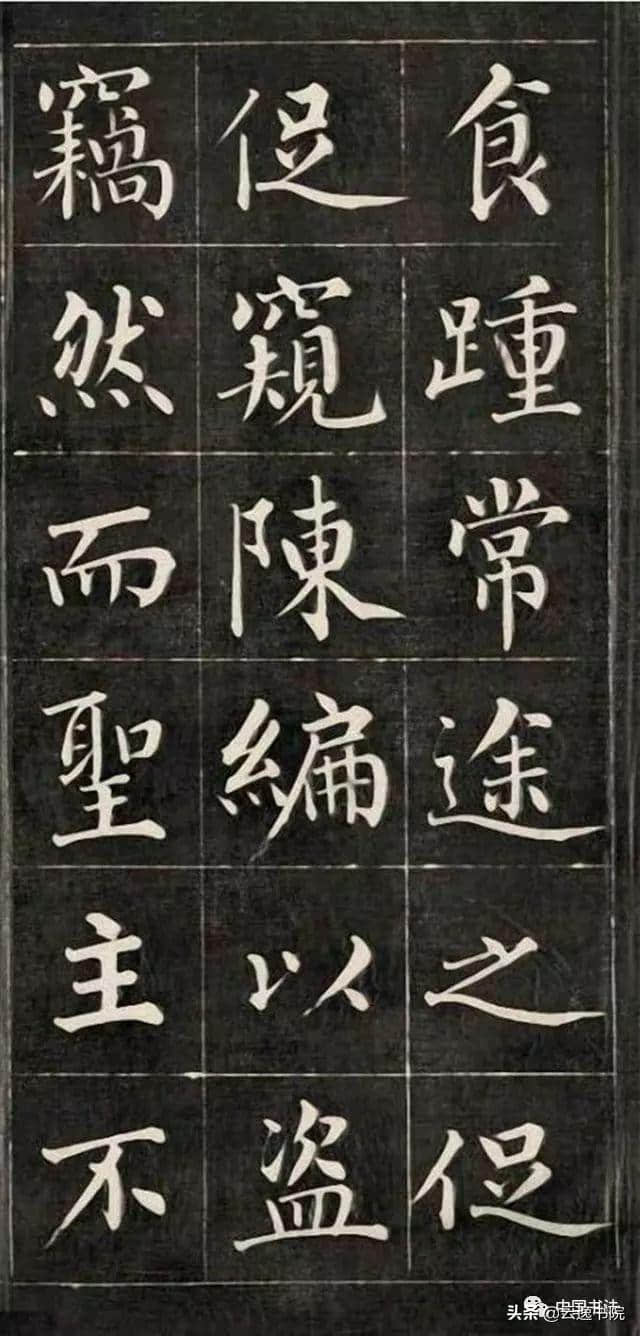 食踵常途之促
促窺陳編以盗
竊然而聖主不
中国书法
头条@云逸书院